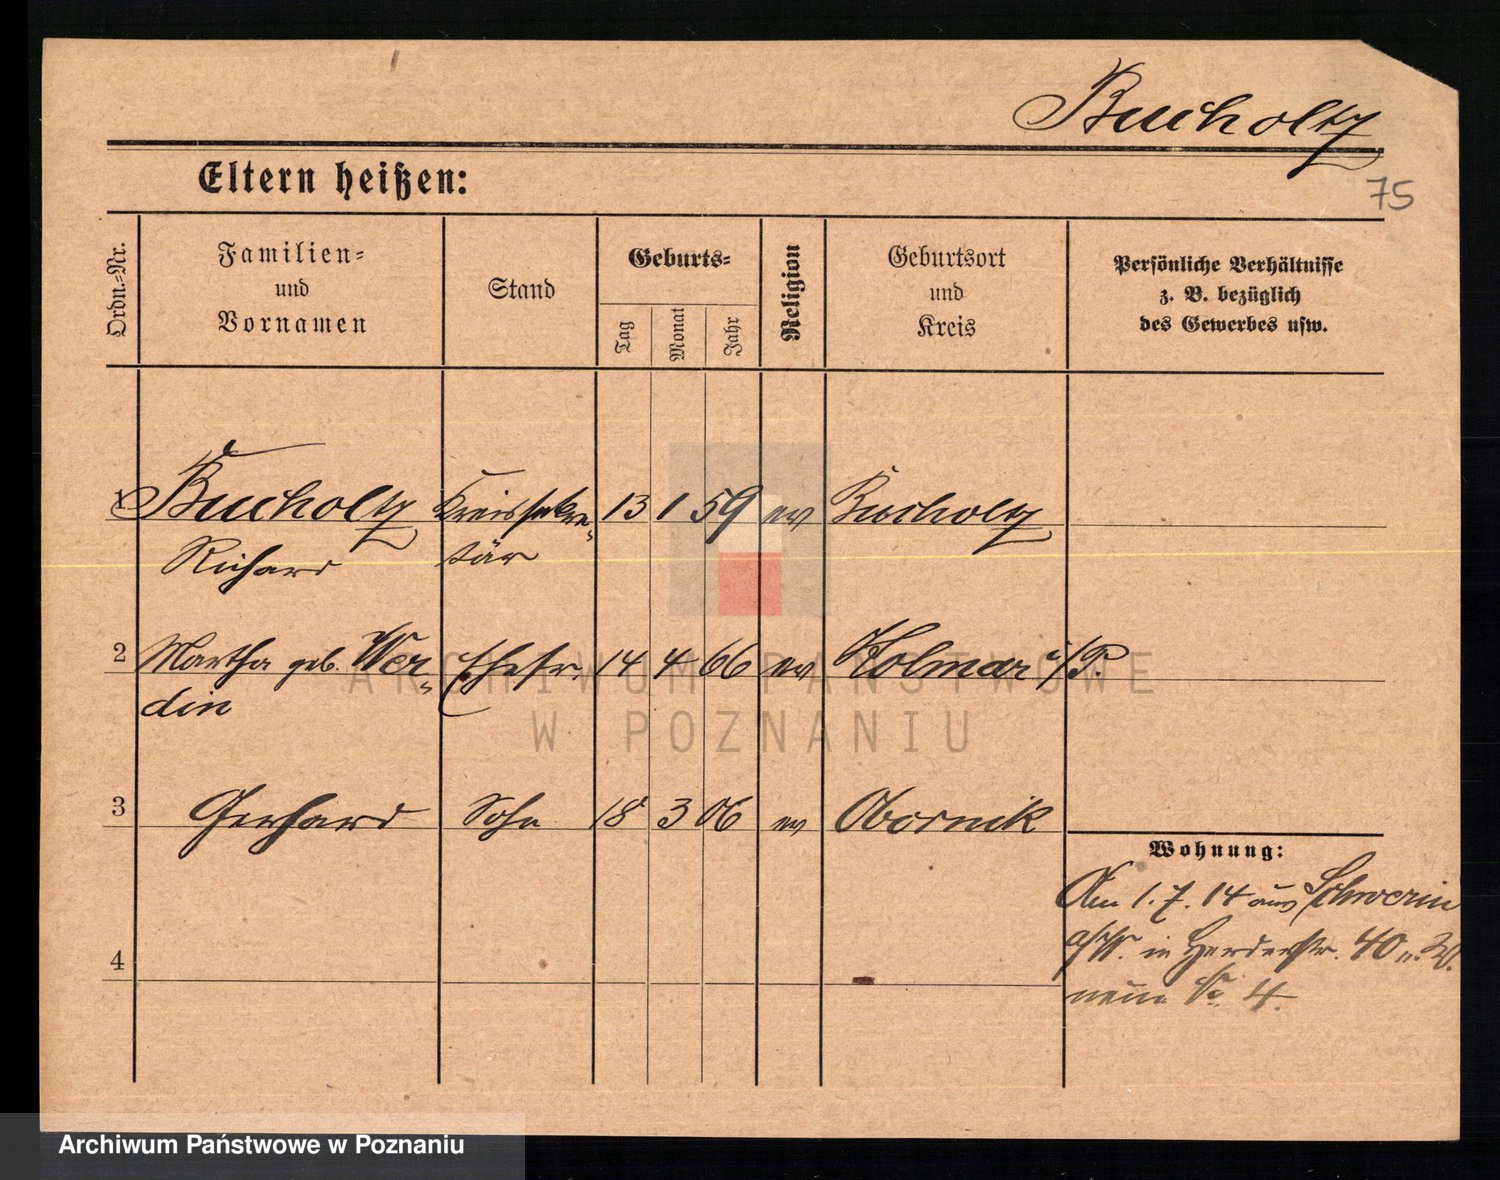 Bucholtz
75
Eltern heißen:
Ordn.-Nr.
Familien-
und
Vornamen
Stand
Geburts-
Tag
Monat
Jahr
Religion
Geburtsort
und
Kreis
Persönliche Verhältnisse
z. B. bezüglich
des Gewerbes usw.
1 Bucholtz Kreissekre- 13 1 59 ev Bucholz
Richard tär
2 Martha geb. Wer- Ehefr. 14 4 66 ev Kolmar i/P.
din
3 Gerhard Sohn 18 3 06 ev Obornik
Wohnung:
Am 1.7.14 aus Schwerin
a/W. in Herderstr. 40
4
neue 4
ARCHIWUM PAŃSTWOWE
W POZNANIU
Archiwum Państwowe w Poznaniu